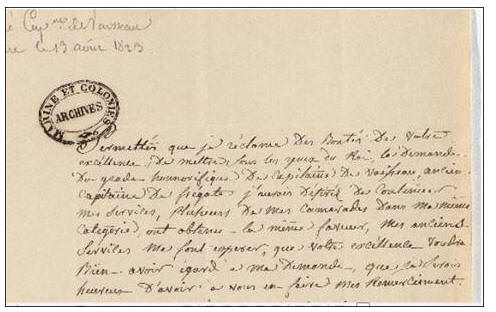 Cap.ne de Vaisseau
le 13 août 1823
MARINE ET COLONIES
ARCHIVES
ermettés que je réclame Des Bontés De Votre
excellence, De mettre sous les yeux du Roi, la Demande
Du grade honnorifique De Capitaine De Vaisseau, ancien
Capitaine De fregate j'aurois Desiré De Continuer
mes Services, Plusieurs De mes Camarades Dans ma même
Catégorie, ont obtenu la même faveur, Mes anciens
Services me font esperer, que votre excellence voudra
Bien avoir égard a ma Demande, que je serois
heureux D'avoir a vous en faire mes Remerciement.